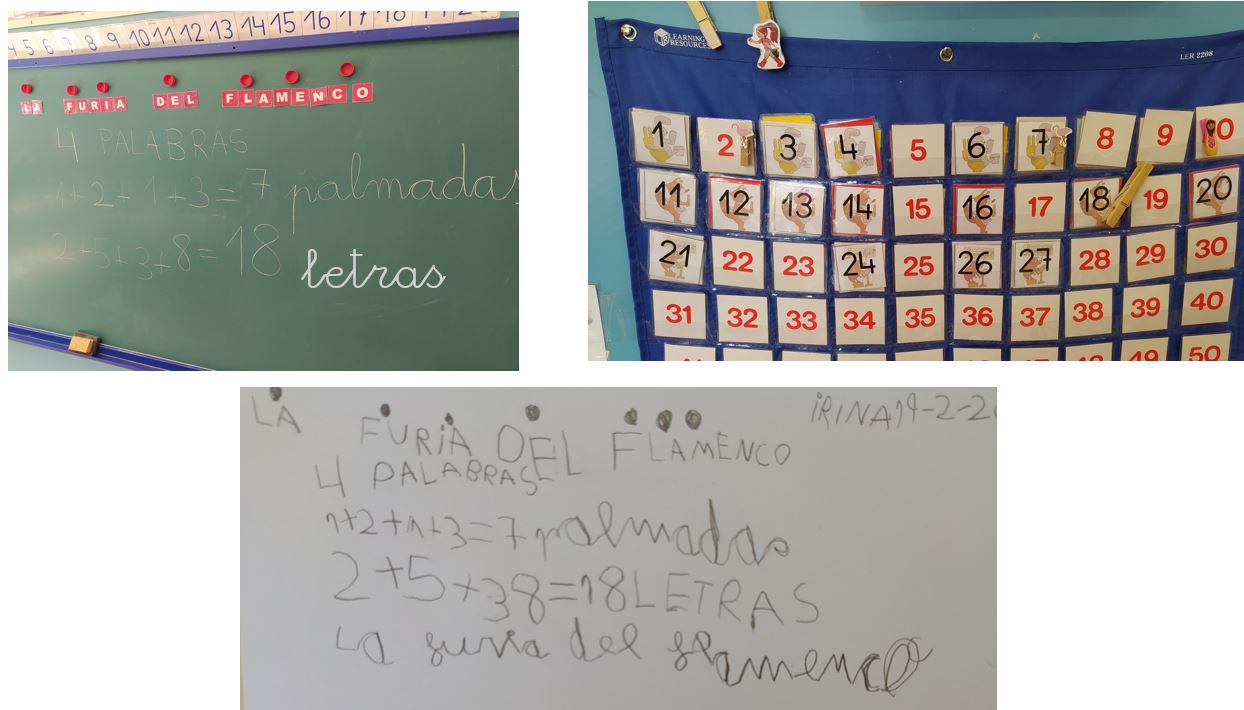 4 5 6 7 8 9 10 11 12 13 14 15 16 17 18
LA FURIA DEL FLAMENCO
4 PALABRAS
1+2+1+3=7 palmadas
2+5+3+8=18 letras
LEARNING RESOURCES
LER 2208
1 2 3 4 5 6 7 8 9 0
11 12 13 14 15 16 17 18 19 20
21 22 23 24 25 26 27 28 29 30
31 32 33 34 35 36 37 38 39 40
49 50
LA FURIA DEL FLAMENCO
iRINA 19-2-20
4 PALABRAS
1+2+1+3=7 palmadas
2+5+38=18 LETRAS
La furia del flamenco